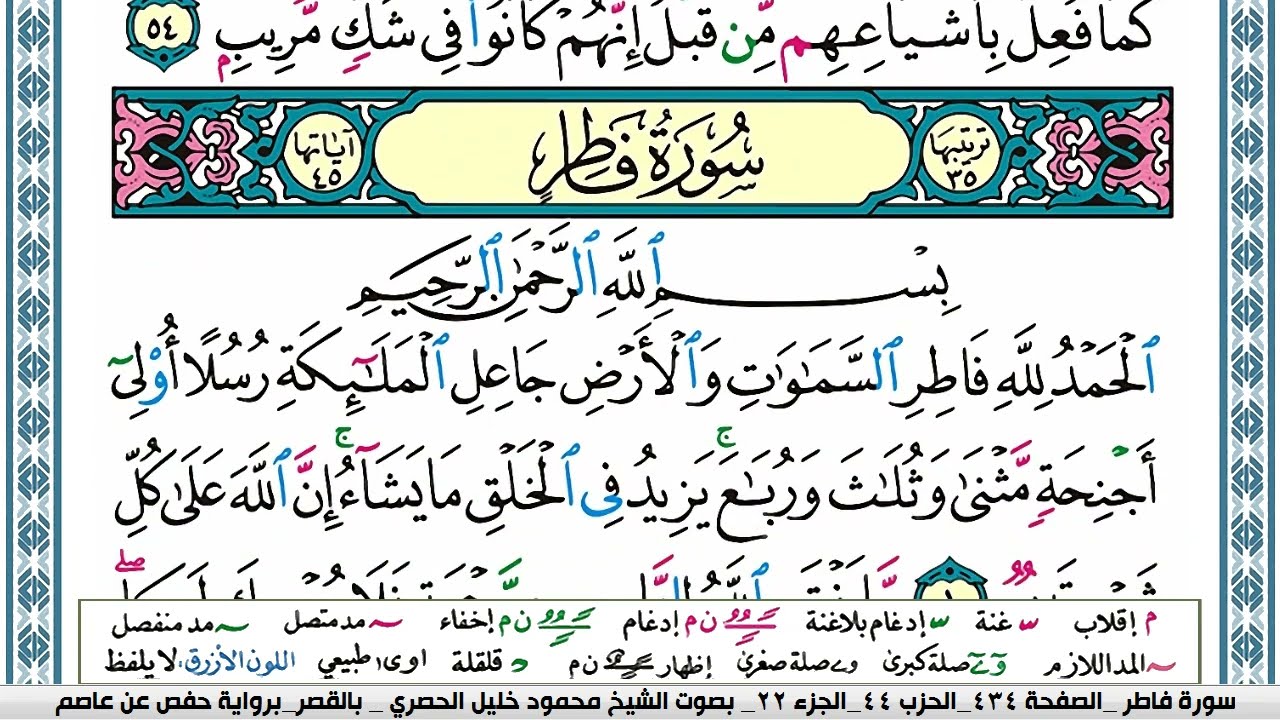 كَمَا فُعِلَ بِأَشْيَاعِهِم مِّن قَبْلُ إِنَّهُمْ كَانُوا۟ فِى شَكٍّ مُّرِيبٍۭ ٥٤
ترتيبها ٣٥ سُورَةُ فَاطِرٍ آياتها ٤٥
بِسْمِ ٱللَّهِ ٱلرَّحْمَٰنِ ٱلرَّحِيمِ
ٱلْحَمْدُ لِلَّهِ فَاطِرِ ٱلسَّمَٰوَٰتِ وَٱلْأَرْضِ جَاعِلِ ٱلْمَلَٰٓئِكَةِ رُسُلًا أُو۟لِىٓ
أَجْنِحَةٍ مَّثْنَىٰ وَثُلَٰثَ وَرُبَٰعَ ۚ يَزِيدُ فِى ٱلْخَلْقِ مَا يَشَآءُ ۚ إِنَّ ٱللَّهَ عَلَىٰ كُلِّ
م إقلاب س غنة س إدغام بلاغنة ن م إدغام ن م إخفاء مد متصل مد منفصل
المد اللازم صلة كبرى صلة صغرى إظهار ن م قلقلة اوى، طبيعي اللون الأزرق: لا يلفظ
سورة فاطر _الصفحة ٤٣٤_الحزب ٤٤_الجزء ٢٢_ بصوت الشيخ محمود خليل الحصري _ بالقصر_برواية حفص عن عاصم